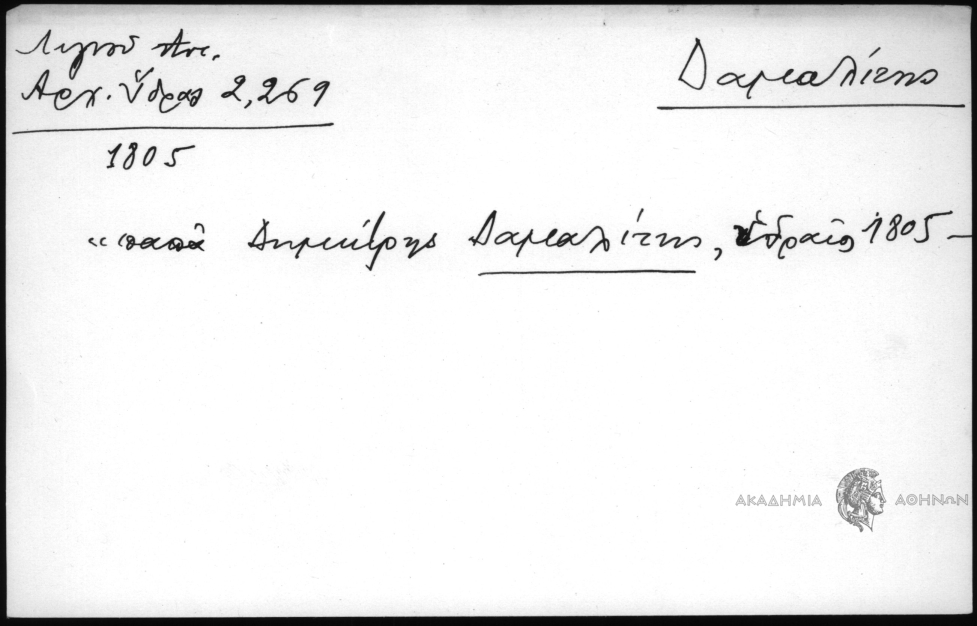 Λιγνοῦ Ἀντ.
Ἀρχ. Ὕδρας 2,269
Δαμαλίτης
1805
«παπᾶ Δημήτρης Δαμαλίτης, Ὑδραῖος 1805 –
ΑΚΑΔΗΜΙΑ ΑΘΗΝΩΝ